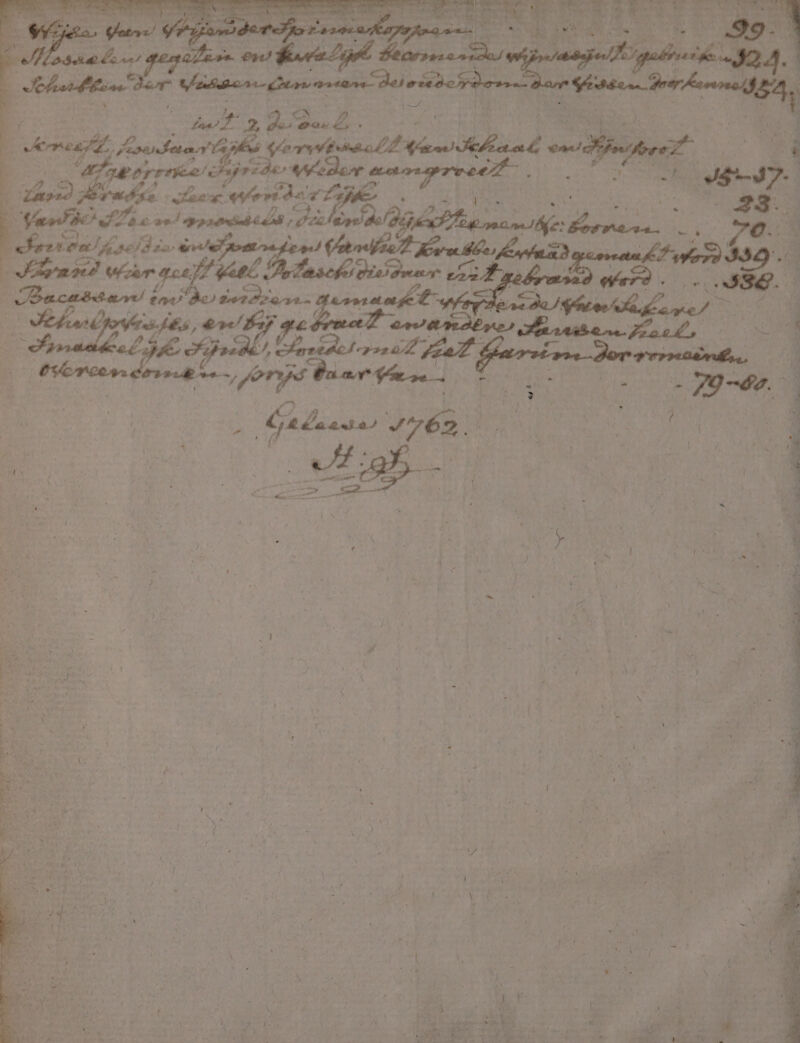 Wijse van Vrijen der Spinnekoppen - - - - 99.
Mosselen gegeten en kwalijk becomende wijn asijn te gebruiken 124.
Schubben der Vissen can men de ouderdom der Vissen door kennen 154.
in't 2de deel.
Kreeft, hoe Jaarlijks verwisselt van Schaal en Zijn poot
afgebroke Zijnde weder aangroeit . - - - 15-17.
Land Krabbe Seer wonderlijk - - - - 23.
Van de Steen mossels, die in de dijkx steenen &c: borren - . 70.
Soude hoe die in Spanjen van het krabbe kruid gemaakt word 139.
Strand wier geeft veel Potasch die daar uit gebrand word . - . 138.
Bacassan in de indien gemaakt wordende van sekere
Schulpvisjes, en bij gebraat en andere Sausen heel
Smaakelijk Zijnde, Soude met het Garum der romeinen
overeencomen, prijs daar van - - - - 79-80.
Geleese 1762.